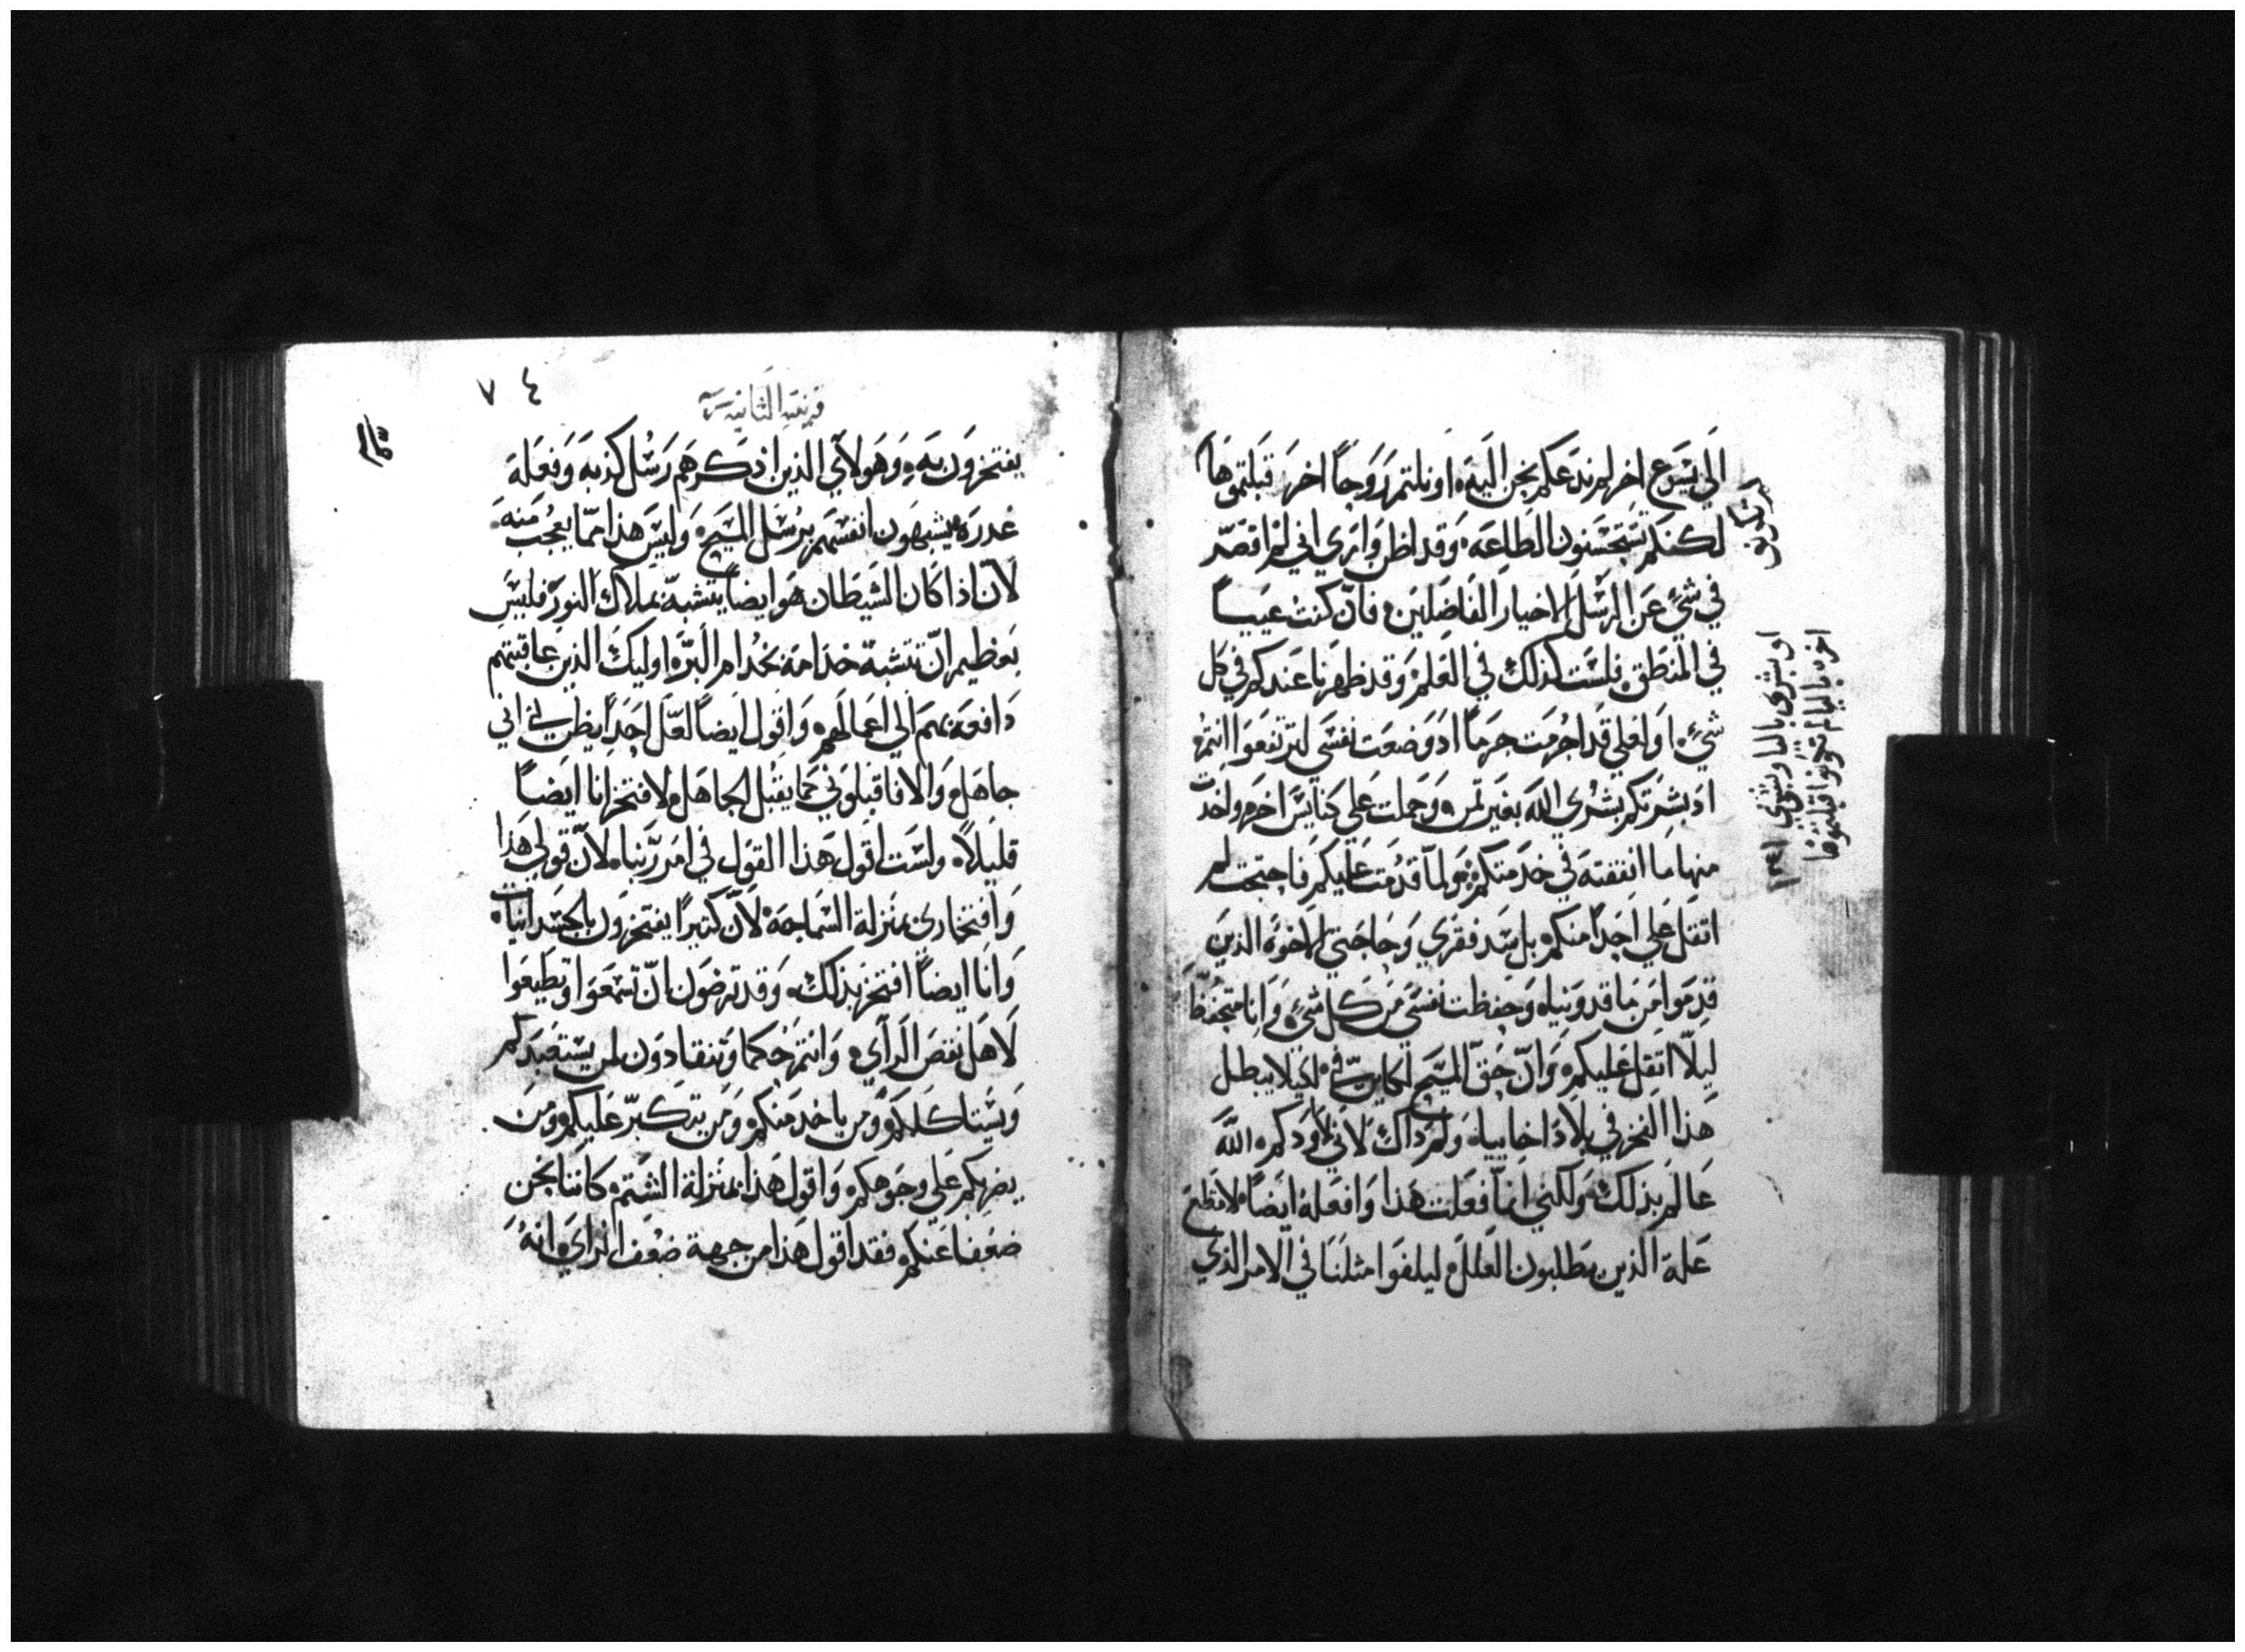 الي يسوع اخر لم ندعكم نحن اليه او نلتم روحاً اخر قبلتموها
لكنكم تستحسنون الطاعه وقد اظن واري اني لم اقصّر
في شيٍ عن الرسل الاخيار الفاضلين فانّ كنت عيياً
في المنطق فلست كذلك في العلم وقد ظهرنا عندكم في كل
شيٍ او لعلي قد اجرمت جرماً اد وضعت نفسي لترتفعوا انتم
اد بشرتكم بشري الله بغير تمن وحملت علي كنايس اخر واخدت
منها ما انفقته في خدمتكم ولما قدمت عليكم فاحتجت لم
اتقل علي احداً منكم بل سد فقري وحاجتي الاخوه الذين
قدموا من ماقدونياه وحفظت نفسي من كل شيٍ وانا متحفظ
ليلّا اتقل عليكم وانّ حق المسيح لكاينٌ فيّ لكيلا يبطل
هذا الفخر في بلاد اخاييا ولم داك لاني لا اودكم الله
عالم بذلك ولكني انما فعلت هذا وافعله ايضاً لاقطع
علة الذين يطلبون العلل ليلفوا مثلنا في الامر الذي
او بشري بالنا وبشري
اخره بالباء لم تكونوا قبلتموها
٧٤
قرنتيه الثانيه
يفتخرون به وهولاي الذين اذكرهم رسل كذبه وفعلة
غدره يشبهون انفسهم برسل المسيح وليس هذا ممّا يعجب منه
لانّ اذا كان الشيطان هو ايضاً يتشبّه بملاك النور فليس
بعظيم انّ تتشبه خدامه بخدام البرّ اوليك الذين عاقبتهم
دافعة بهم الي اعمالهم واقول ايضاً لعلّ احداً يظن بي اني
جاهل والا فاقبلوني كما يقبل الجاهل لافتخر انا ايضاً
قليلاً ولست اقول هذا القول في امر ربّنا لانّ قولي هذا
وافتخاري بمنزلة السماجه لانّ كتيراً يفتخرون بالجسدانيات
وانا ايضاً افتخر بذلك وقد ترضون انّ تسمعوا وتطيعوا
لاهل نقص الراي وانتم حكما وتنقادون لمن يستعبدكم
ويستاكلكم ومن ياخد منكم ومن يتكبرّ عليكم ومن
يضربكم علي وجوهكم واقول هذا بمنزلة الشتم كاننا نحن
ضعفا عنكم فقد اقول هذا من جهة ضعف الراي انه